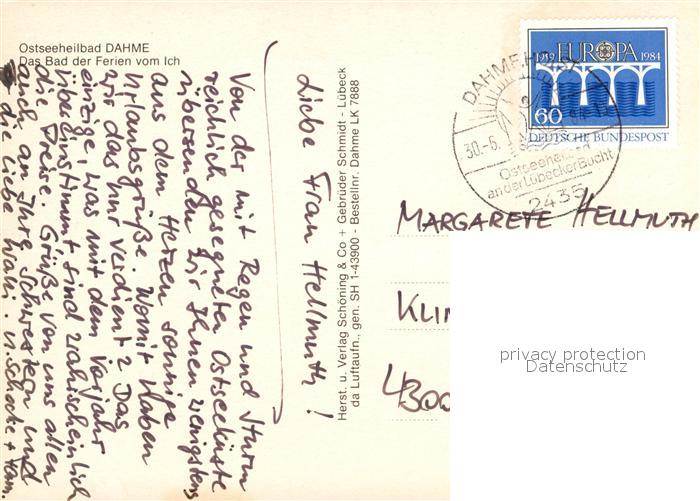 Ostseeheilbad DAHME
Das Bad der Ferien vom Ich
Liebe Frau Hellmuth!
Von der mit Regen und Sturm
reichlich gesegneten Ostseeküste
übersenden wir Ihnen wenigstens
aus dem Herzen sonnige
Urlaubsgrüße. Womit haben
wir das nur verdient? Das
einzige, was mit dem Vorjahr
übereinstimmt sind wahrscheinlich
die Preise. Grüße von uns allen
auch an Ihre Schwestern und
die liebe
Herst. u. Verlag Schöning & Co + Gebrüder Schmidt - Lübeck
da Luftaufn., gen. SH 1-43900 - Bestellnr. Dahme LK 7888
DAHME, HOLST
30.-6.
Ostseeheilbad
an der Lübecker Bucht
2435
1959 EUROPA 1984
60
DEUTSCHE BUNDESPOST
MARGARETE HELLMUTH
KLIN
4300
privacy protection
Datenschutz